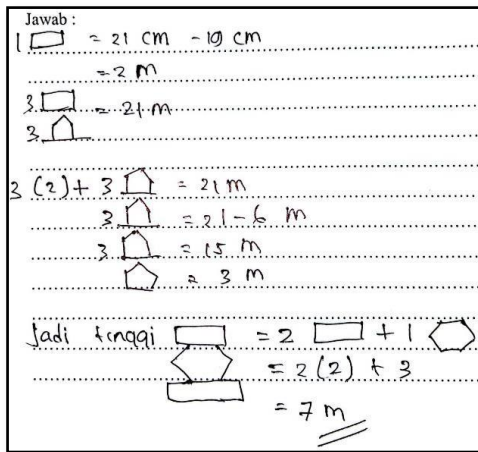 Jawab :
1 ▭ = 21 cm - 19 cm
= 2 m
3 ▭ = 21 m
3 ⌂
3 (2) + 3 ⌂ = 21 m
3 ⌂ = 21 - 6 m
3 ⌂ = 15 m
⬠ = 3 m
Jadi tinggi ▭ = 2 ▭ + 1 ⬡
= 2 (2) + 3
= 7 m